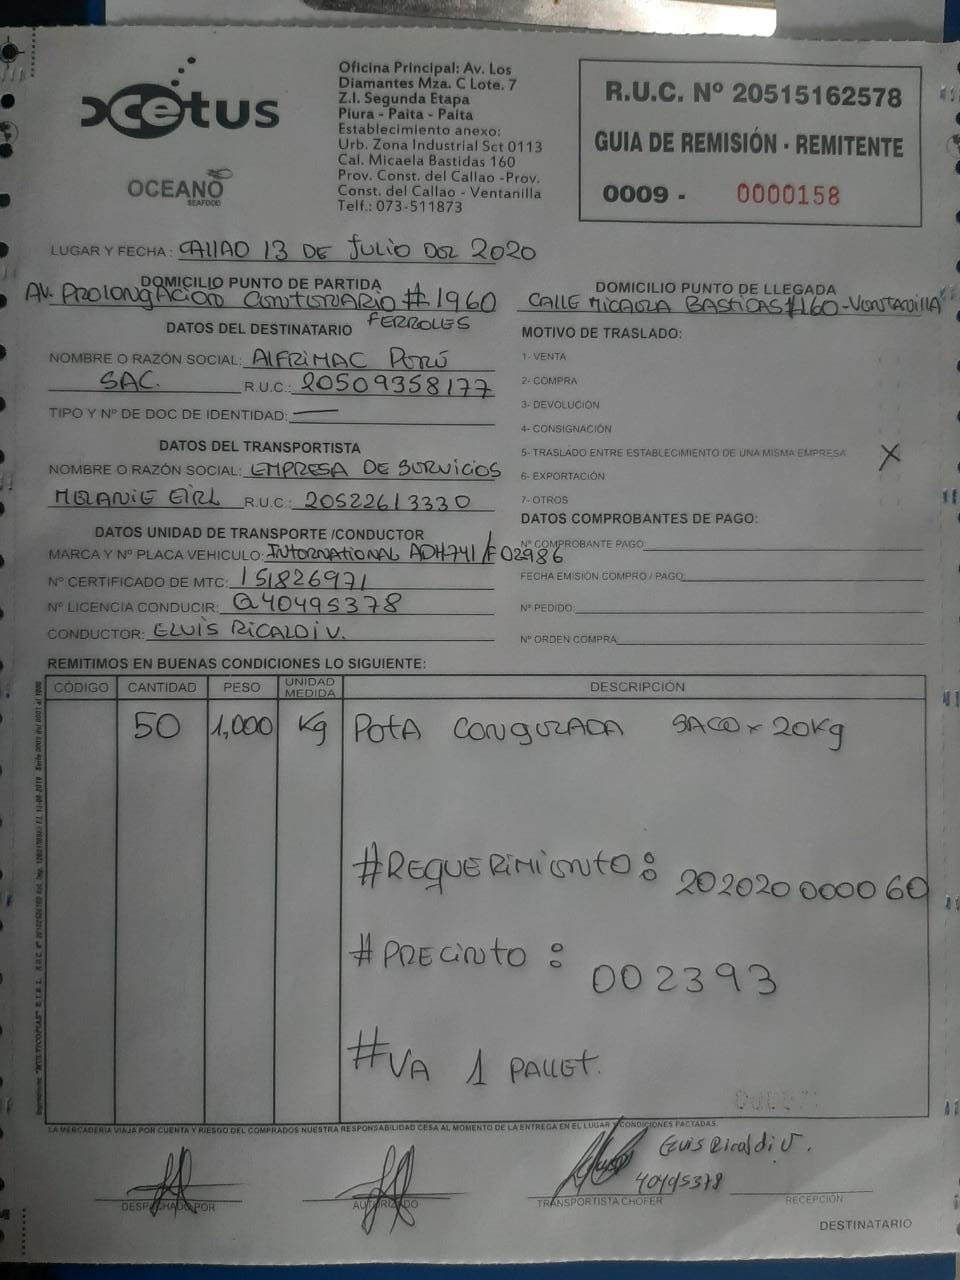 xcetus
OCEANO
SEAFOOD
Oficina Principal: Av. Los
Diamantes Mza. C Lote. 7
Z.I. Segunda Etapa
Piura - Paita - Paita
Establecimiento anexo:
Urb. Zona Industrial Sct 0113
Cal. Micaela Bastidas 160
Prov. Const. del Callao -Prov.
Const. del Callao - Ventanilla
Telf.: 073-511873
R.U.C. Nº 20515162578
GUIA DE REMISIÓN - REMITENTE
0009 - 0000158
LUGAR Y FECHA: CAllAO 13 DE JULIO DEL 2020
DOMICILIO PUNTO DE PARTIDA
AV. PROLONGACION CENTENARIO # 1960
FERROLES
DOMICILIO PUNTO DE LLEGADA
CALLE MICAELA BASTIDAS #160-VENTANILLA
DATOS DEL DESTINATARIO
NOMBRE O RAZÓN SOCIAL: ALFRIMAC PERÚ
SAC. R.U.C.: 20509358177
TIPO Y Nº DE DOC DE IDENTIDAD: —
DATOS DEL TRANSPORTISTA
NOMBRE O RAZÓN SOCIAL: EMPRESA DE SERVICIOS
MELANIE EIRL R.U.C.: 20522613330
DATOS UNIDAD DE TRANSPORTE /CONDUCTOR
MARCA Y Nº PLACA VEHICULO: INTERNATIONAL ADH741 / F02986
Nº CERTIFICADO DE MTC: 151826971
Nº LICENCIA CONDUCIR: Q40495378
CONDUCTOR: ELVIS RICALDI V.
MOTIVO DE TRASLADO:
1- VENTA
2- COMPRA
3- DEVOLUCIÓN
4- CONSIGNACIÓN
5- TRASLADO ENTRE ESTABLECIMIENTO DE UNA MISMA EMPRESA X
6- EXPORTACIÓN
7- OTROS
DATOS COMPROBANTES DE PAGO:
Nº COMPROBANTE PAGO:
FECHA EMISIÓN COMPRO / PAGO:
Nº PEDIDO:
Nº ORDEN COMPRA
REMITIMOS EN BUENAS CONDICIONES LO SIGUIENTE:
CÓDIGO CANTIDAD PESO UNIDAD MEDIDA DESCRIPCIÓN
50 1,000 Kg POTA CONGELADA SACO x 20Kg
#REQUERIMIENTO: 202020000060
# PRECINTO : 002393
#VA 1 PALLET.
LA MERCADERIA VIAJA POR CUENTA Y RIESGO DEL COMPRADOS NUESTRA RESPONSABILIDAD CESA AL MOMENTO DE LA ENTREGA EN EL LUGAR Y CONDICIONES PACTADAS.
Elvis Ricaldi V.
40495378
DESPACHADO POR
AUTORIZADO
TRANSPORTISTA CHOFER
RECEPCIÓN
DESTINATARIO